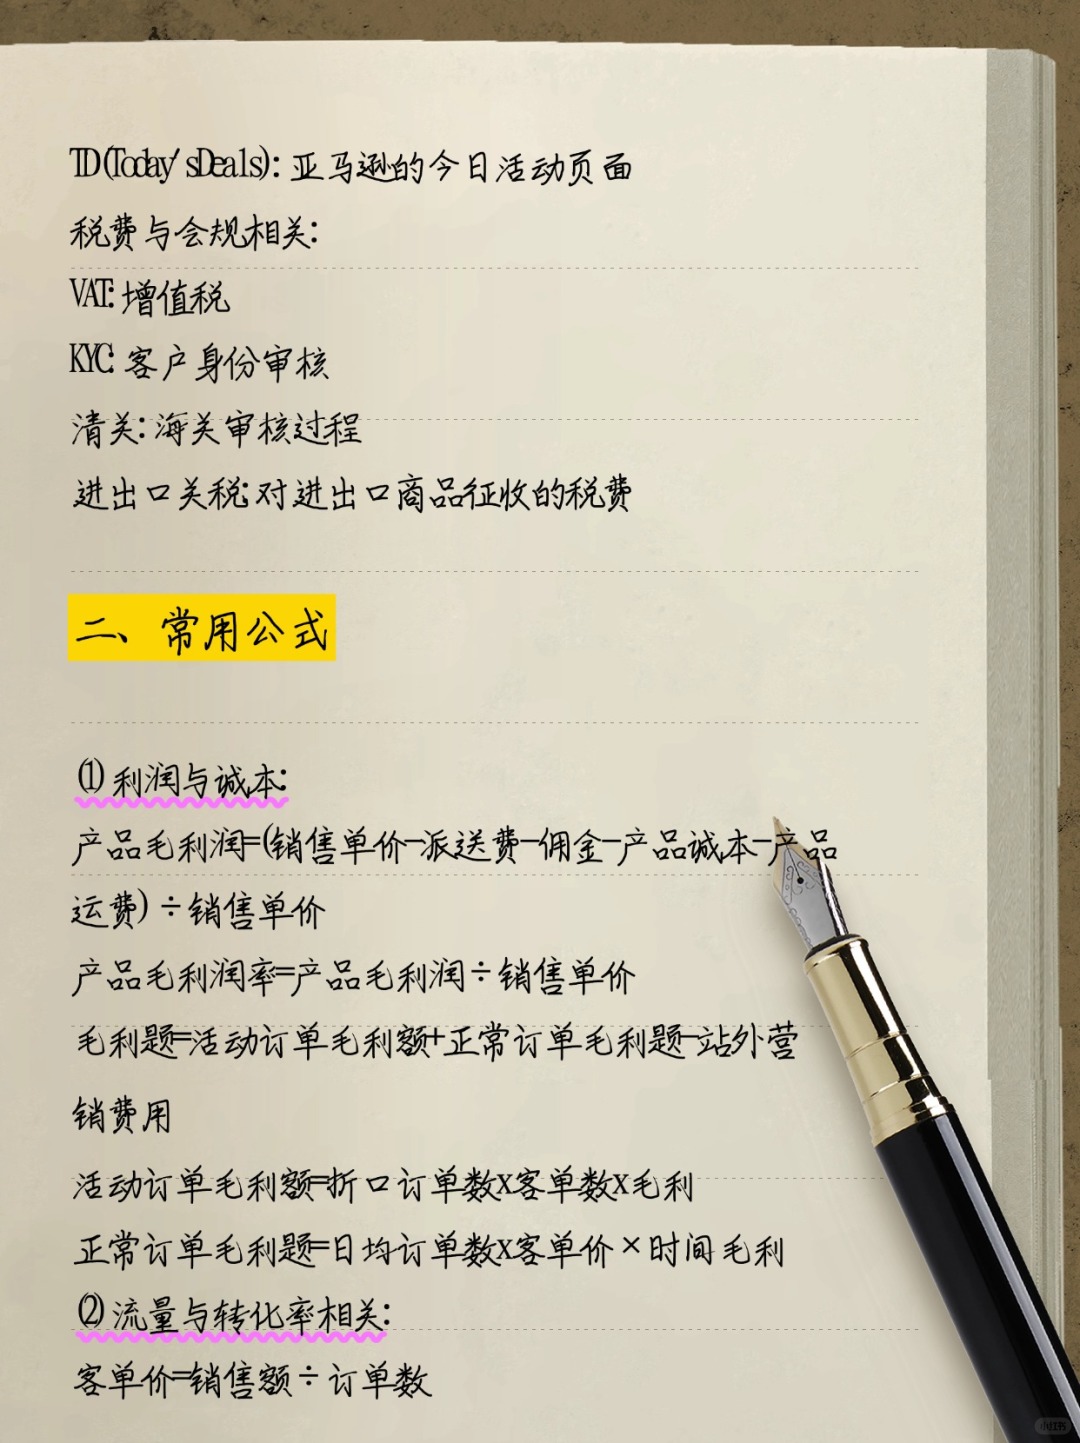 TD(Today'sDeals):亚马逊的今日活动页面
税费与会规相关:
VAT:增值税
KYC:客户身份审核
清关:海关审核过程
进出口关税:对进出口商品征收的税费
二、常用公式
①利润与诚本:
产品毛利润=(销售单价-派送费-佣金-产品诚本-产品
运费)÷销售单价
产品毛利润率=产品毛利润÷销售单价
毛利题=活动订单毛利额+正常订单毛利题-站外营
销费用
活动订单毛利额=折口订单数x客单数x毛利
正常订单毛利题=日均订单数x客单价×时间毛利
②流量与转化率相关:
客单价=销售额÷订单数
小红书